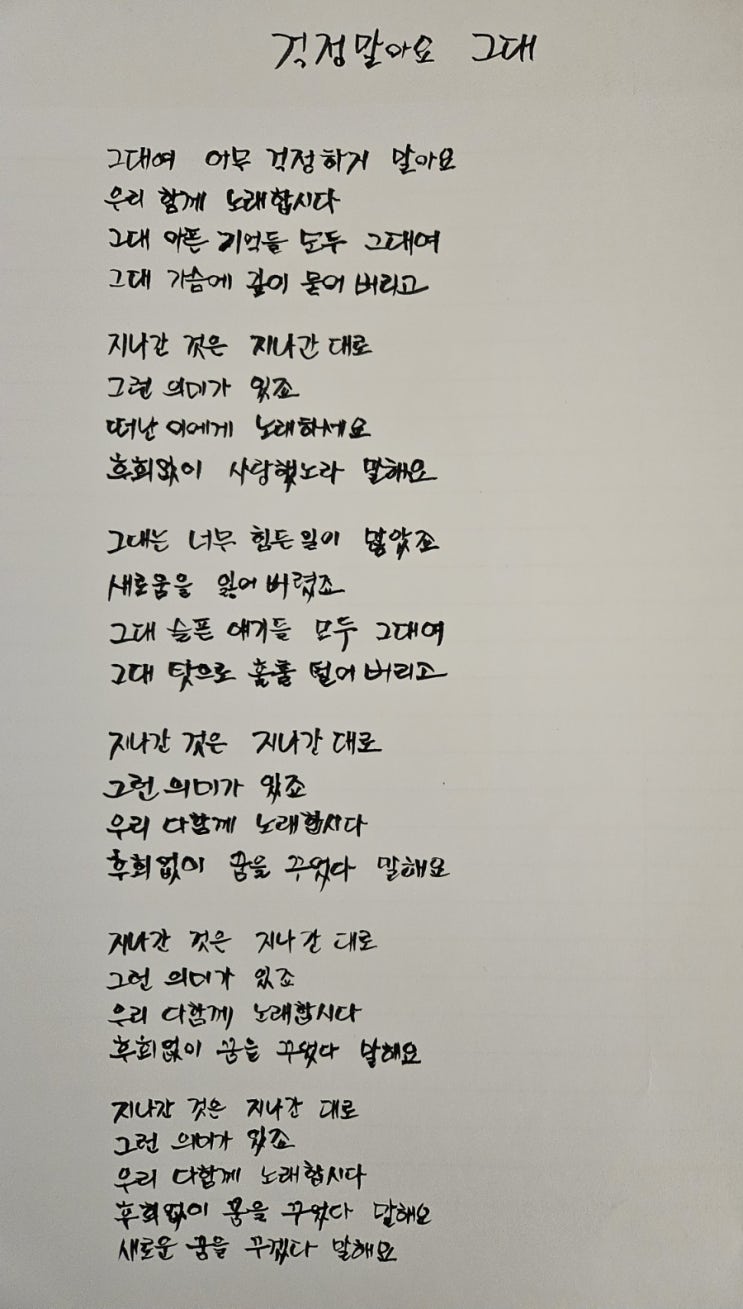 걱정말아요 그대
그대여 아무 걱정하지 말아요
우리 함께 노래합시다
그대 아픈 기억들 모두 그대여
그대 가슴에 깊이 묻어 버리고
지나간 것은 지나간 대로
그런 의미가 있죠
떠난 이에게 노래하세요
후회없이 사랑했노라 말해요
그대는 너무 힘든 일이 많았죠
새로움을 잃어 버렸죠
그대 슬픈 얘기들 모두 그대여
그대 탓으로 훌훌 털어 버리고
지나간 것은 지나간 대로
그런 의미가 있죠
우리 다함께 노래합시다
후회없이 꿈을 꾸었다 말해요
지나간 것은 지나간 대로
그런 의미가 있죠
우리 다함께 노래합시다
후회없이 꿈을 꾸었다 말해요
지나간 것은 지나간 대로
그런 의미가 있죠
우리 다함께 노래합시다
후회없이 꿈을 꾸었다 말해요
새로운 꿈을 꾸겠다 말해요